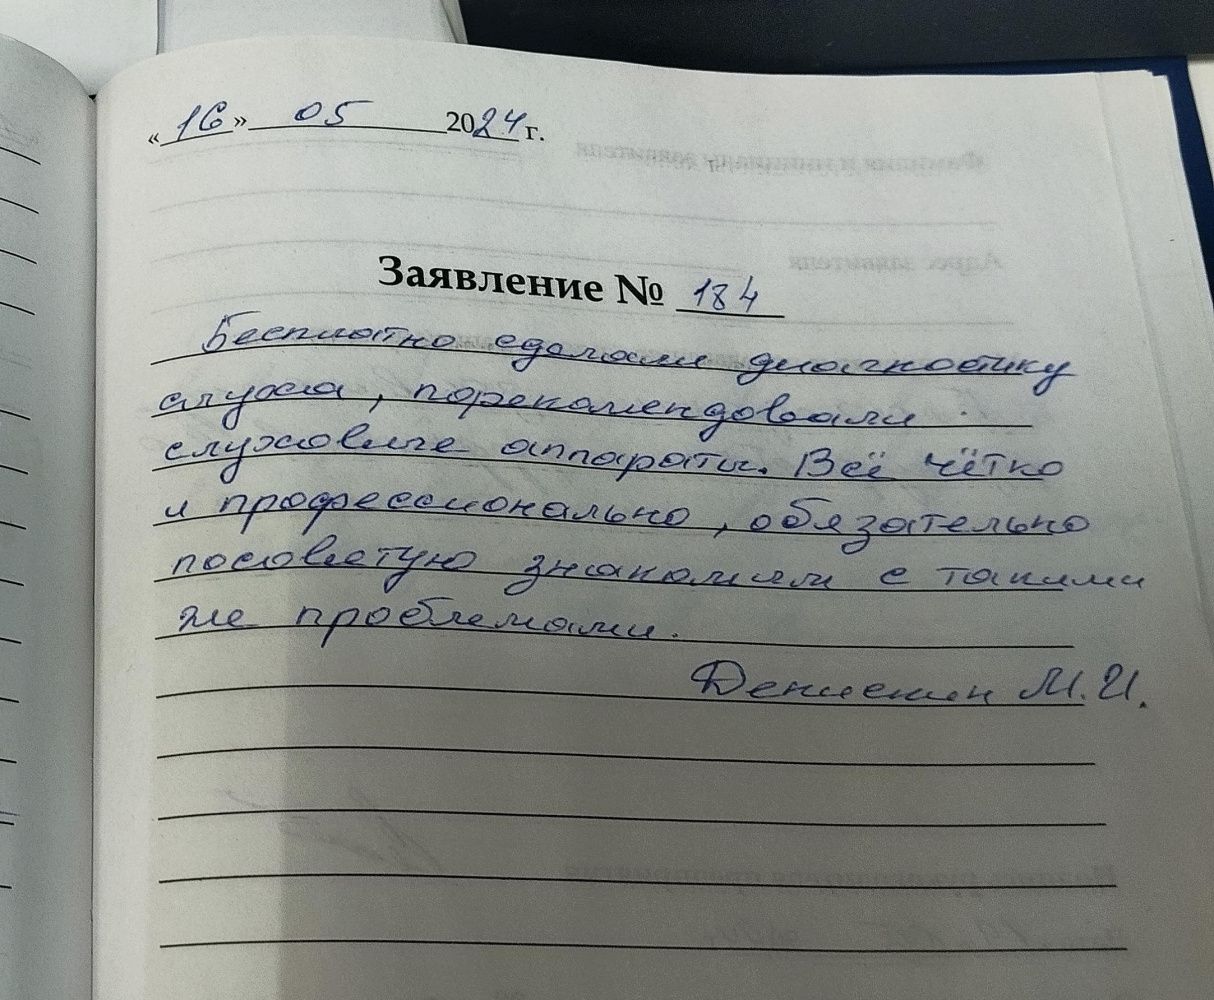 «16» 05 2024 г.
Заявление № 184
Бесплатно сделали диагностику
слуха, порекомендовали
слуховые аппараты. Всё чётко
и профессионально, обязательно
посоветую знакомым с такими
же проблемами.
М.И.